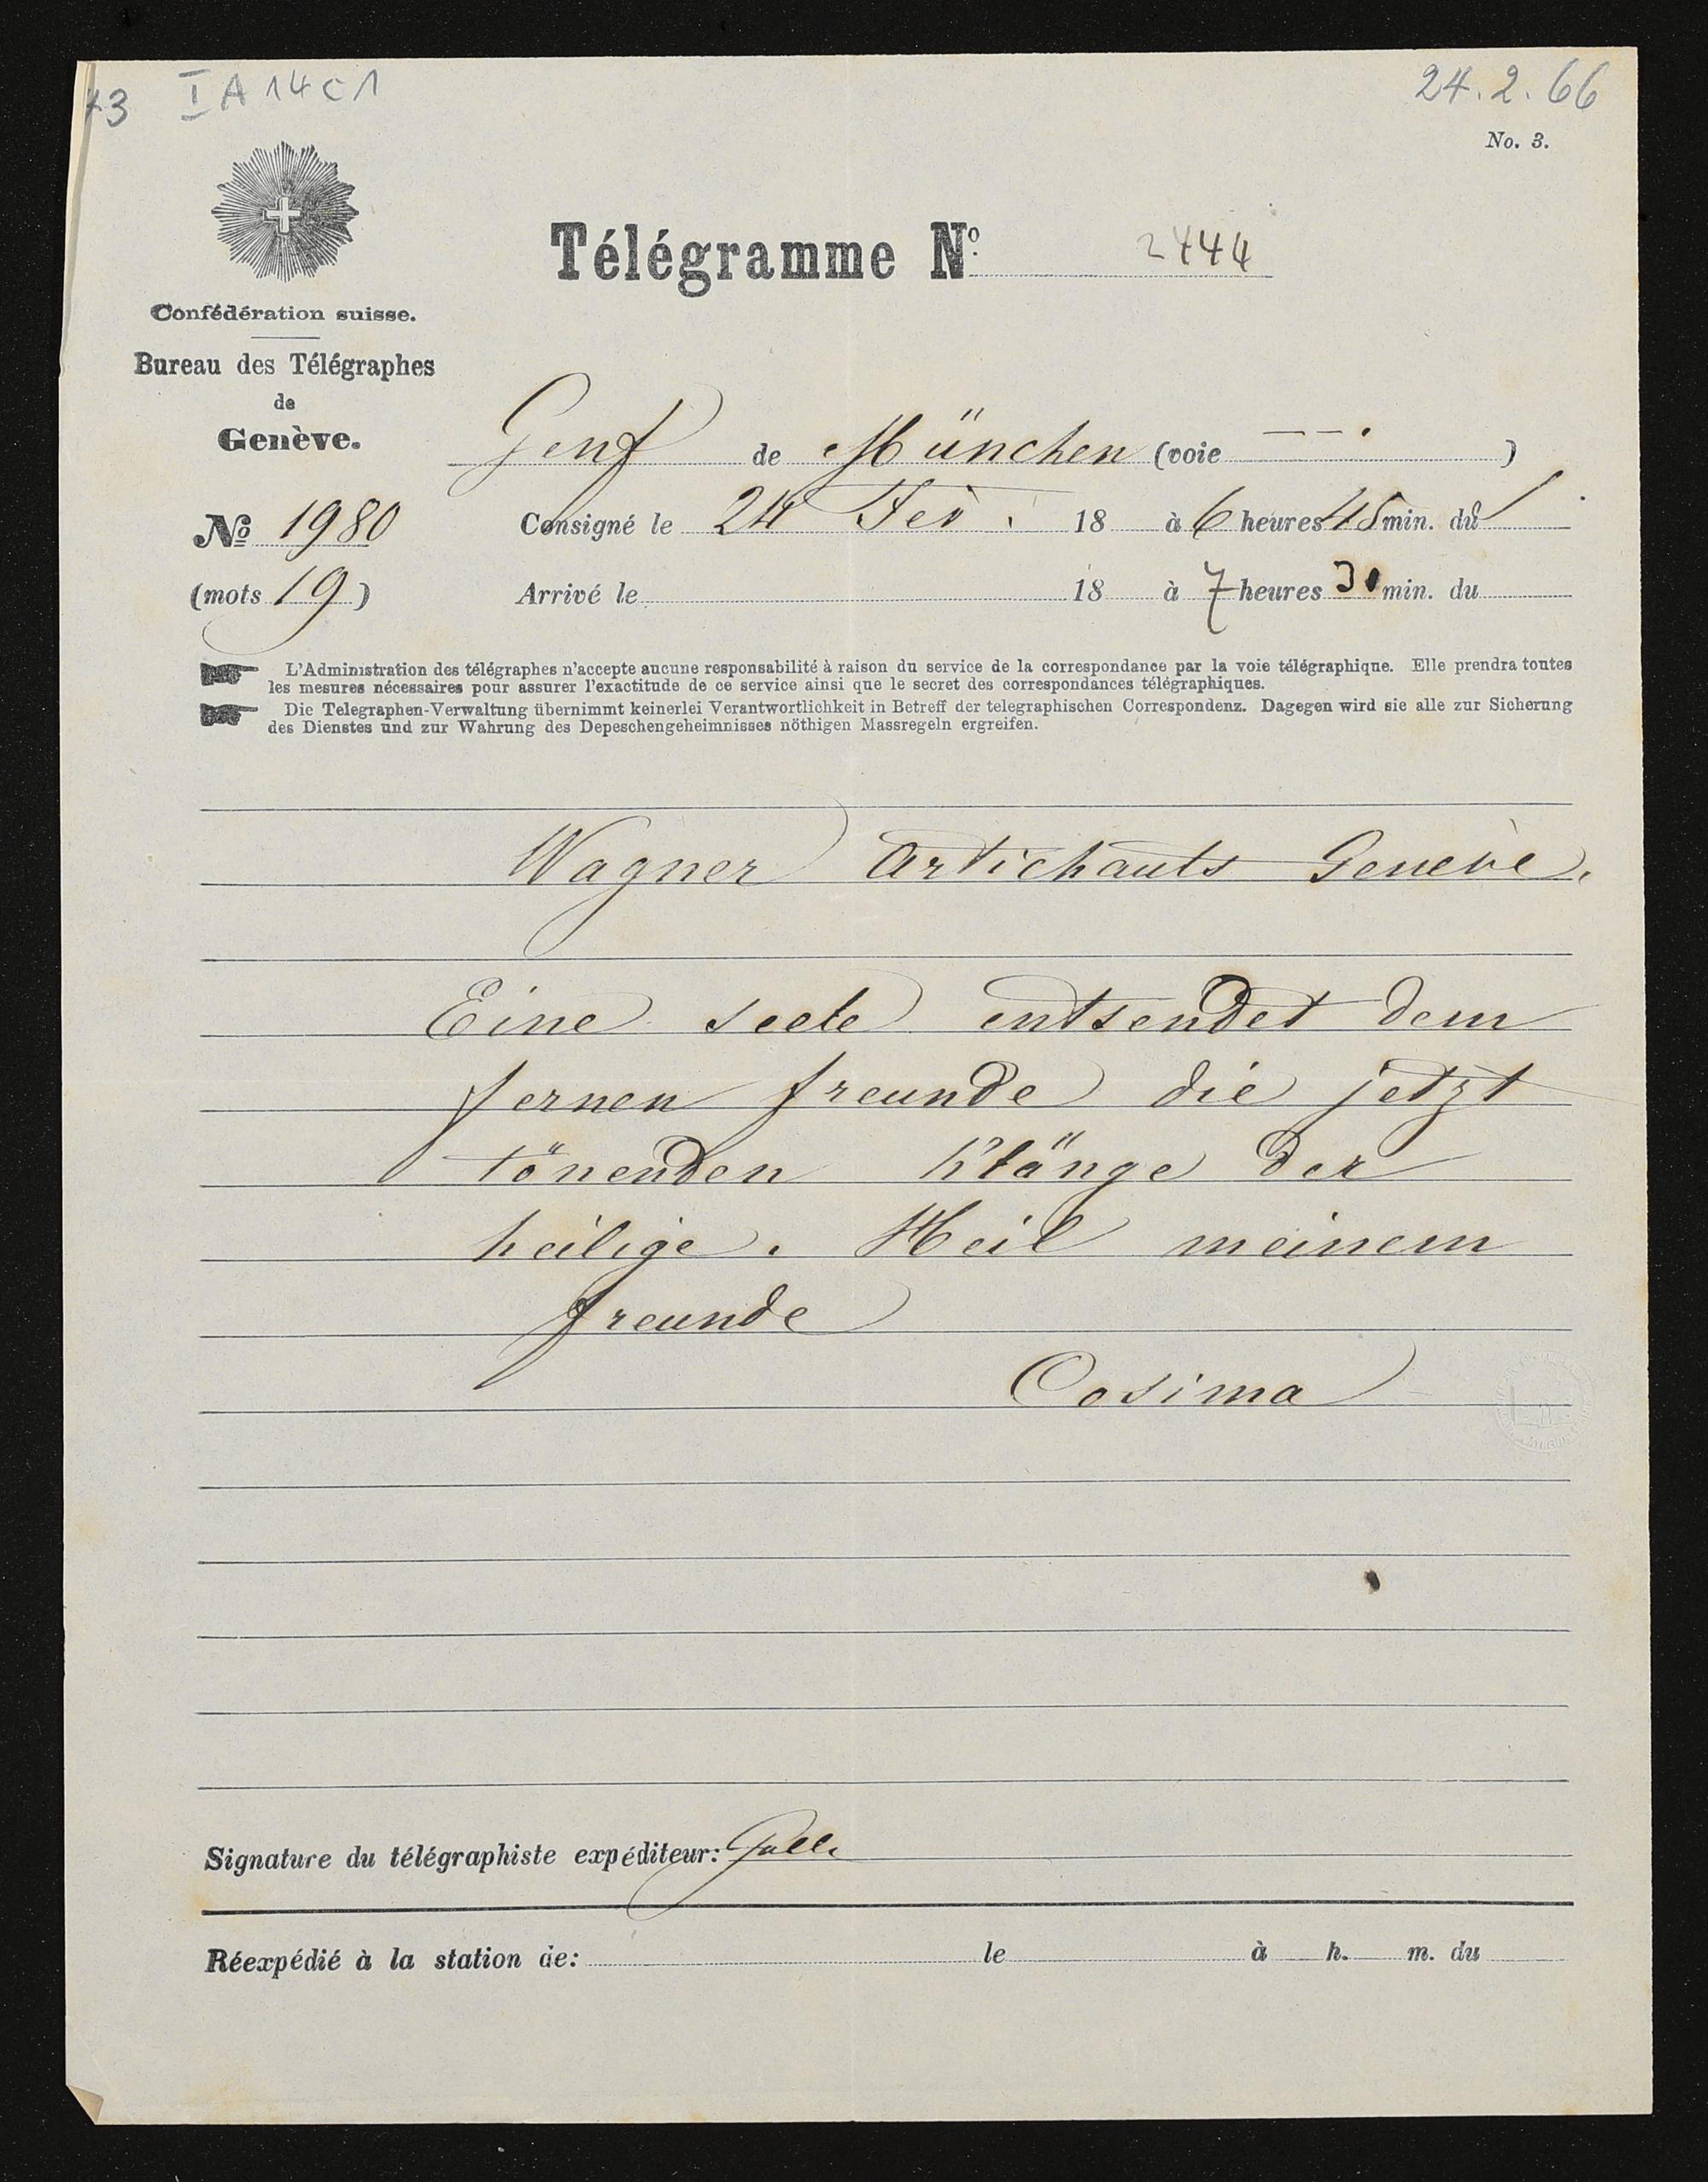 I A 14 c 1
24.2.66
No. 3.
Télégramme No. 2444
Confédération suisse.
Bureau des Télégraphes
de
Genève.
Genf de München (voie — — . )
No 1980 Consigné le 24 Fev. 18 à 6 heures 45 min. du
(mots 19) Arrivé le 18 à 7 heures 30 min. du
L'Administration des télégraphes n'accepte aucune responsabilité à raison du service de la correspondance par la voie télégraphique. Elle prendra toutes
les mesures nécessaires pour assurer l'exactitude de ce service ainsi que le secret des correspondances télégraphiques.
Die Telegraphen-Verwaltung übernimmt keinerlei Verantwortlichkeit in Betreff der telegraphischen Correspondenz. Dagegen wird sie alle zur Sicherung
des Dienstes und zur Wahrung des Depeschengeheimnisses nöthigen Massregeln ergreifen.
Wagner Artichauts Genève.
Eine seele entsendet dem
fernen freunde die jetzt
tönenden Klänge der
heilige. Heil meinem
freunde
Cosima
Signature du télégraphiste expéditeur:
Réexpédié à la station de: le à h. m. du